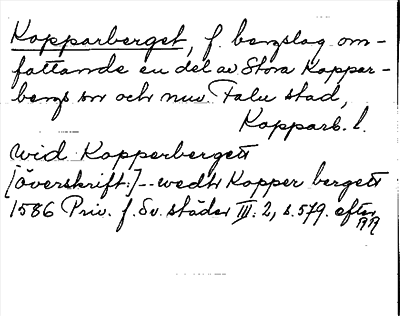 Kopparberget, f. bergslag om-
fattande en del av Stora Koppar-
bergs sn och nuv. Falu stad,
Kopparb. l.
wid Kopperbergett
[överskrift:] -- wedh Kopper bergett
1586 Priv. f. Sv. städer III: 2, s. 579. efter
RA